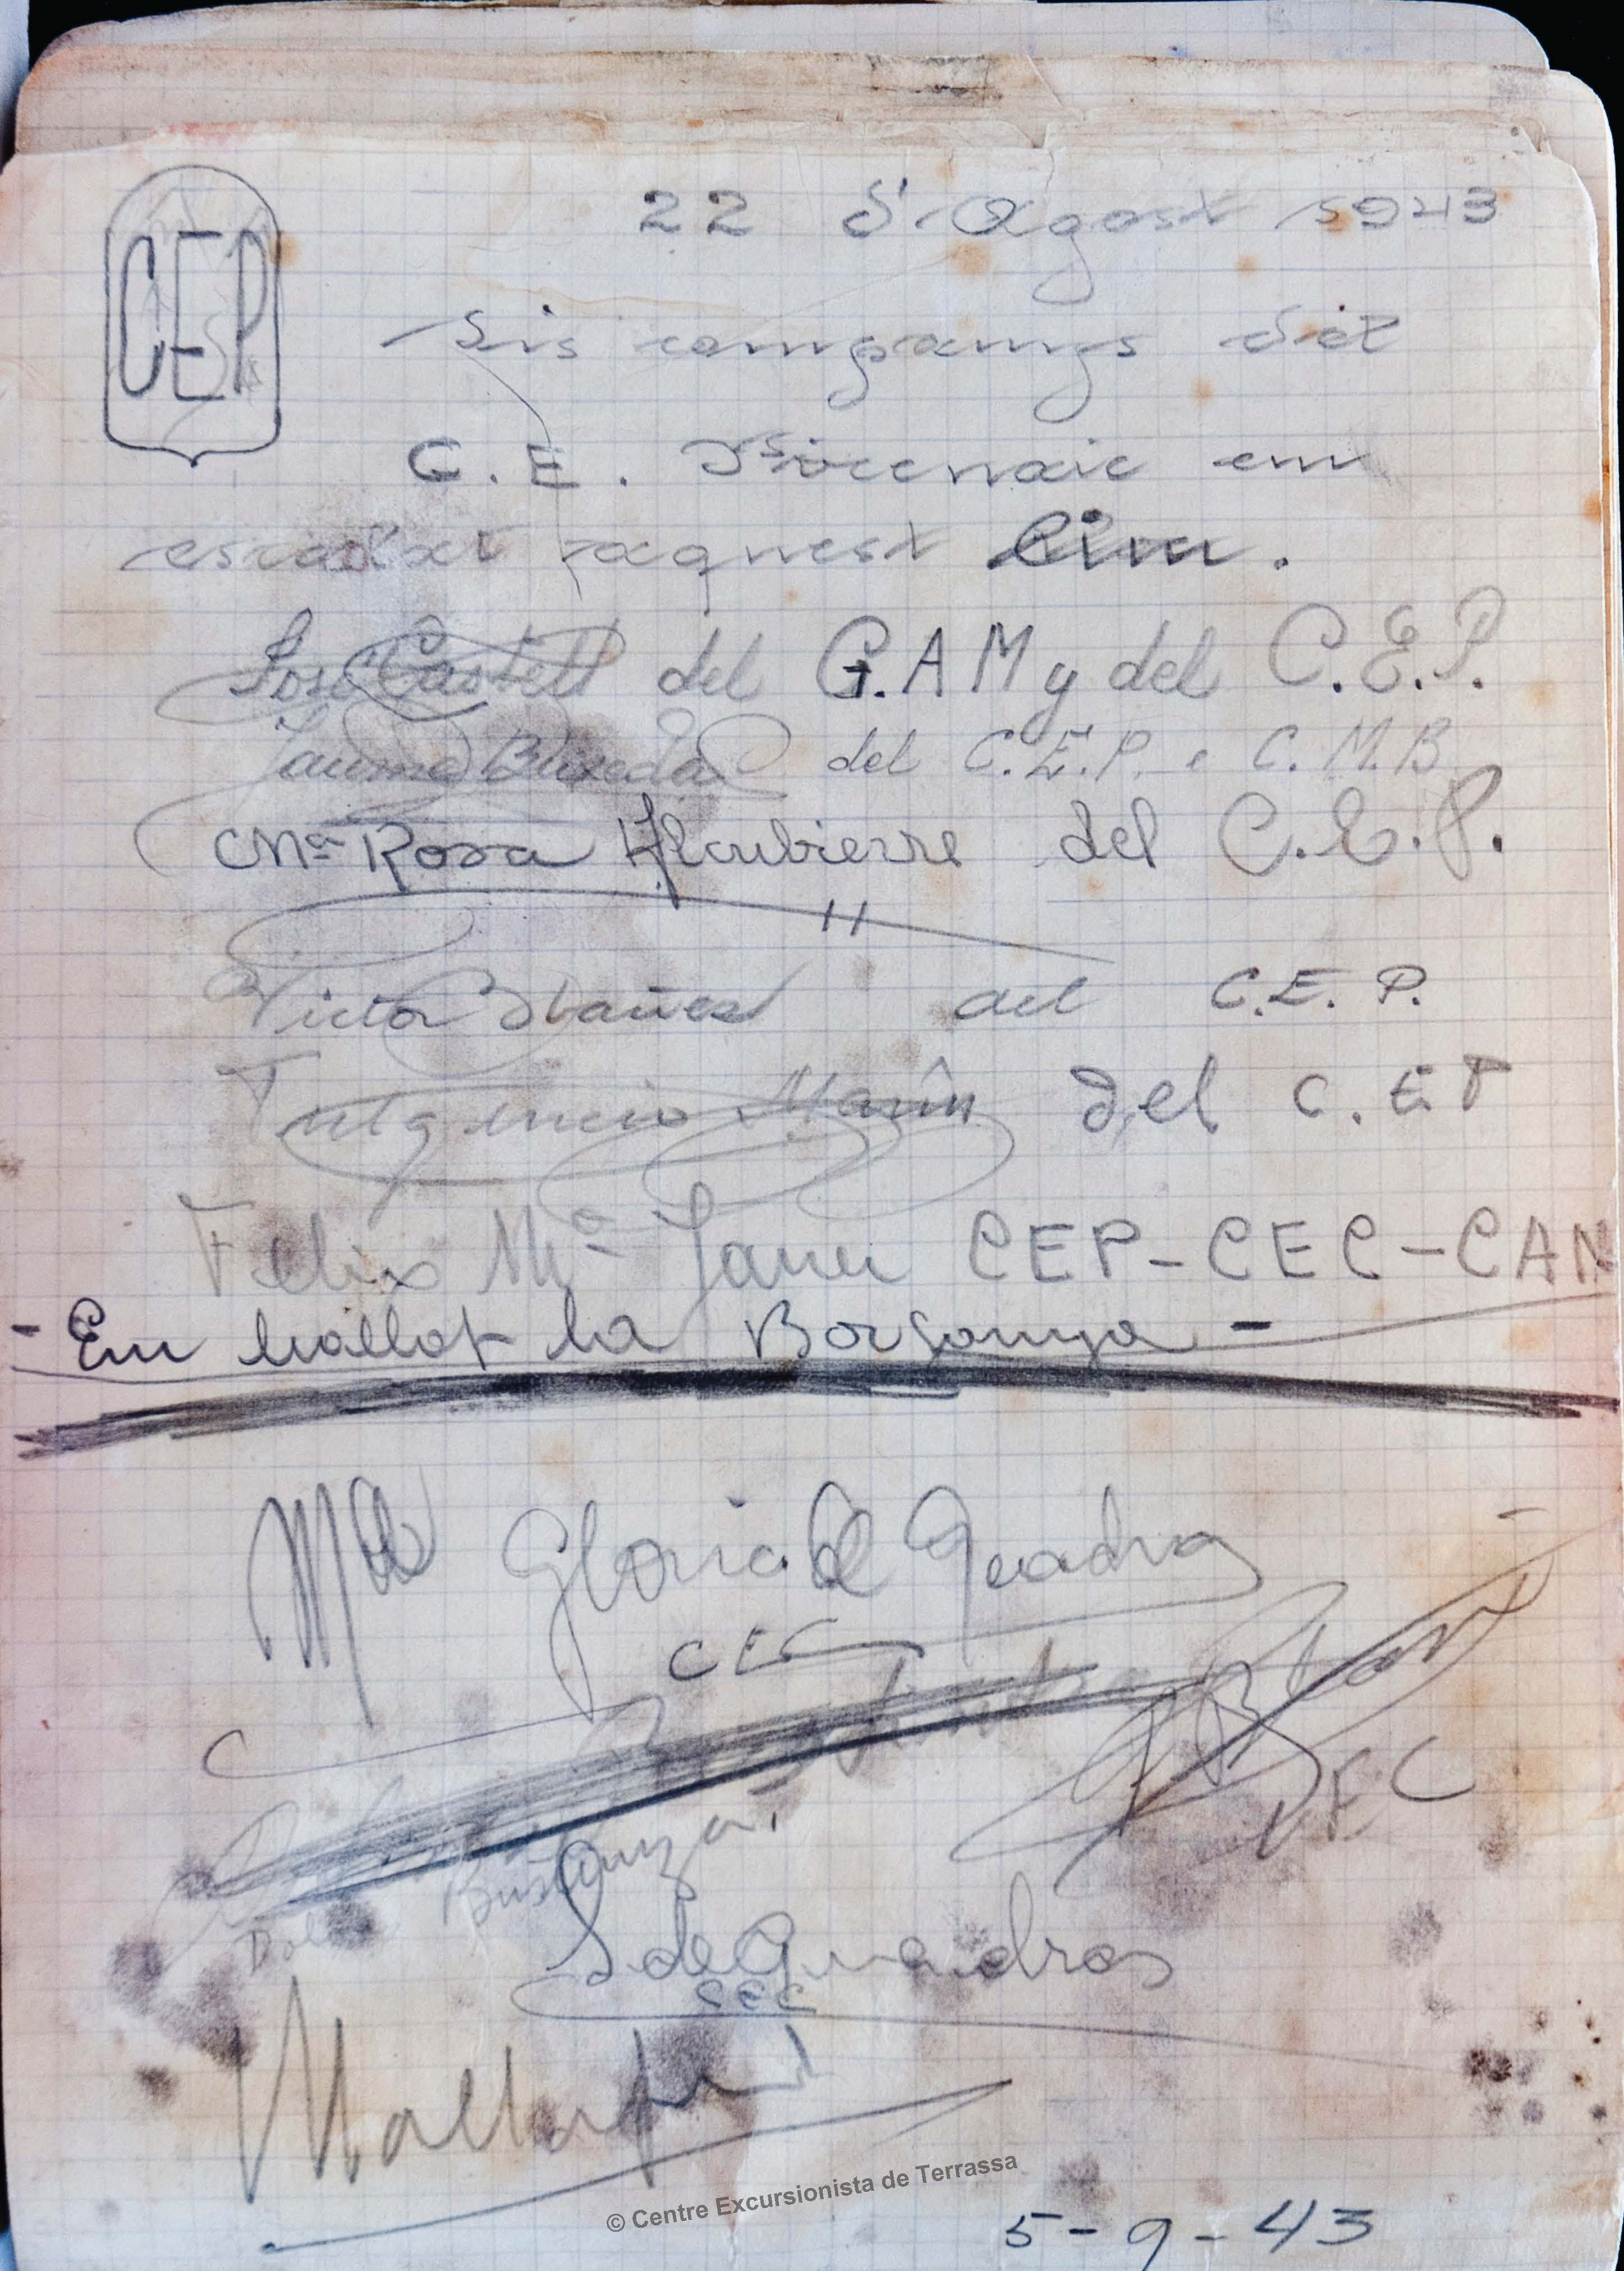 CEP
22 d'Agost 1943
Sis companys del
C. E. Pirenaic em
escalat aquest Cim.
José Castell del G.A M y del C.E.P.
Jaume Buxeda del C.E.P. e C.M.B.
Mª Rosa Alcubierre del C.E.P.
Victor Ibañez del C.E.P.
Fulgencio Marín del C.E.P
Felix Mª Janer CEP-CEC-CAN
- Em ballat la Borsanya -
Mª Gloria de Quadras
CEC
CEC
S de Quadras
CEC
Mallafré
© Centre Excursionista de Terrassa
5-9-43